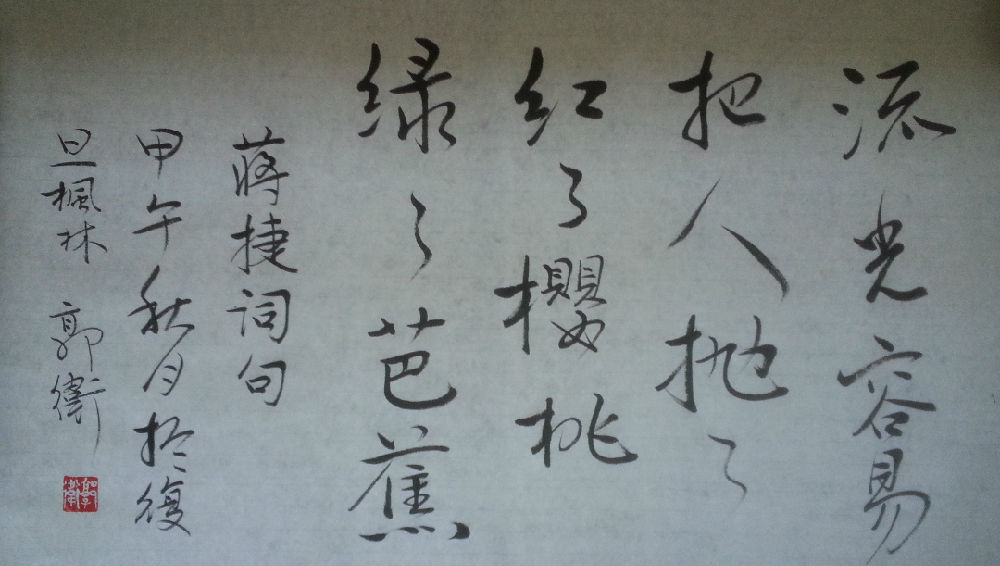 流光容易
把人抛了
红了櫻桃
绿了芭蕉
蒋捷词句
甲午秋月於復
旦楓林 郭衛